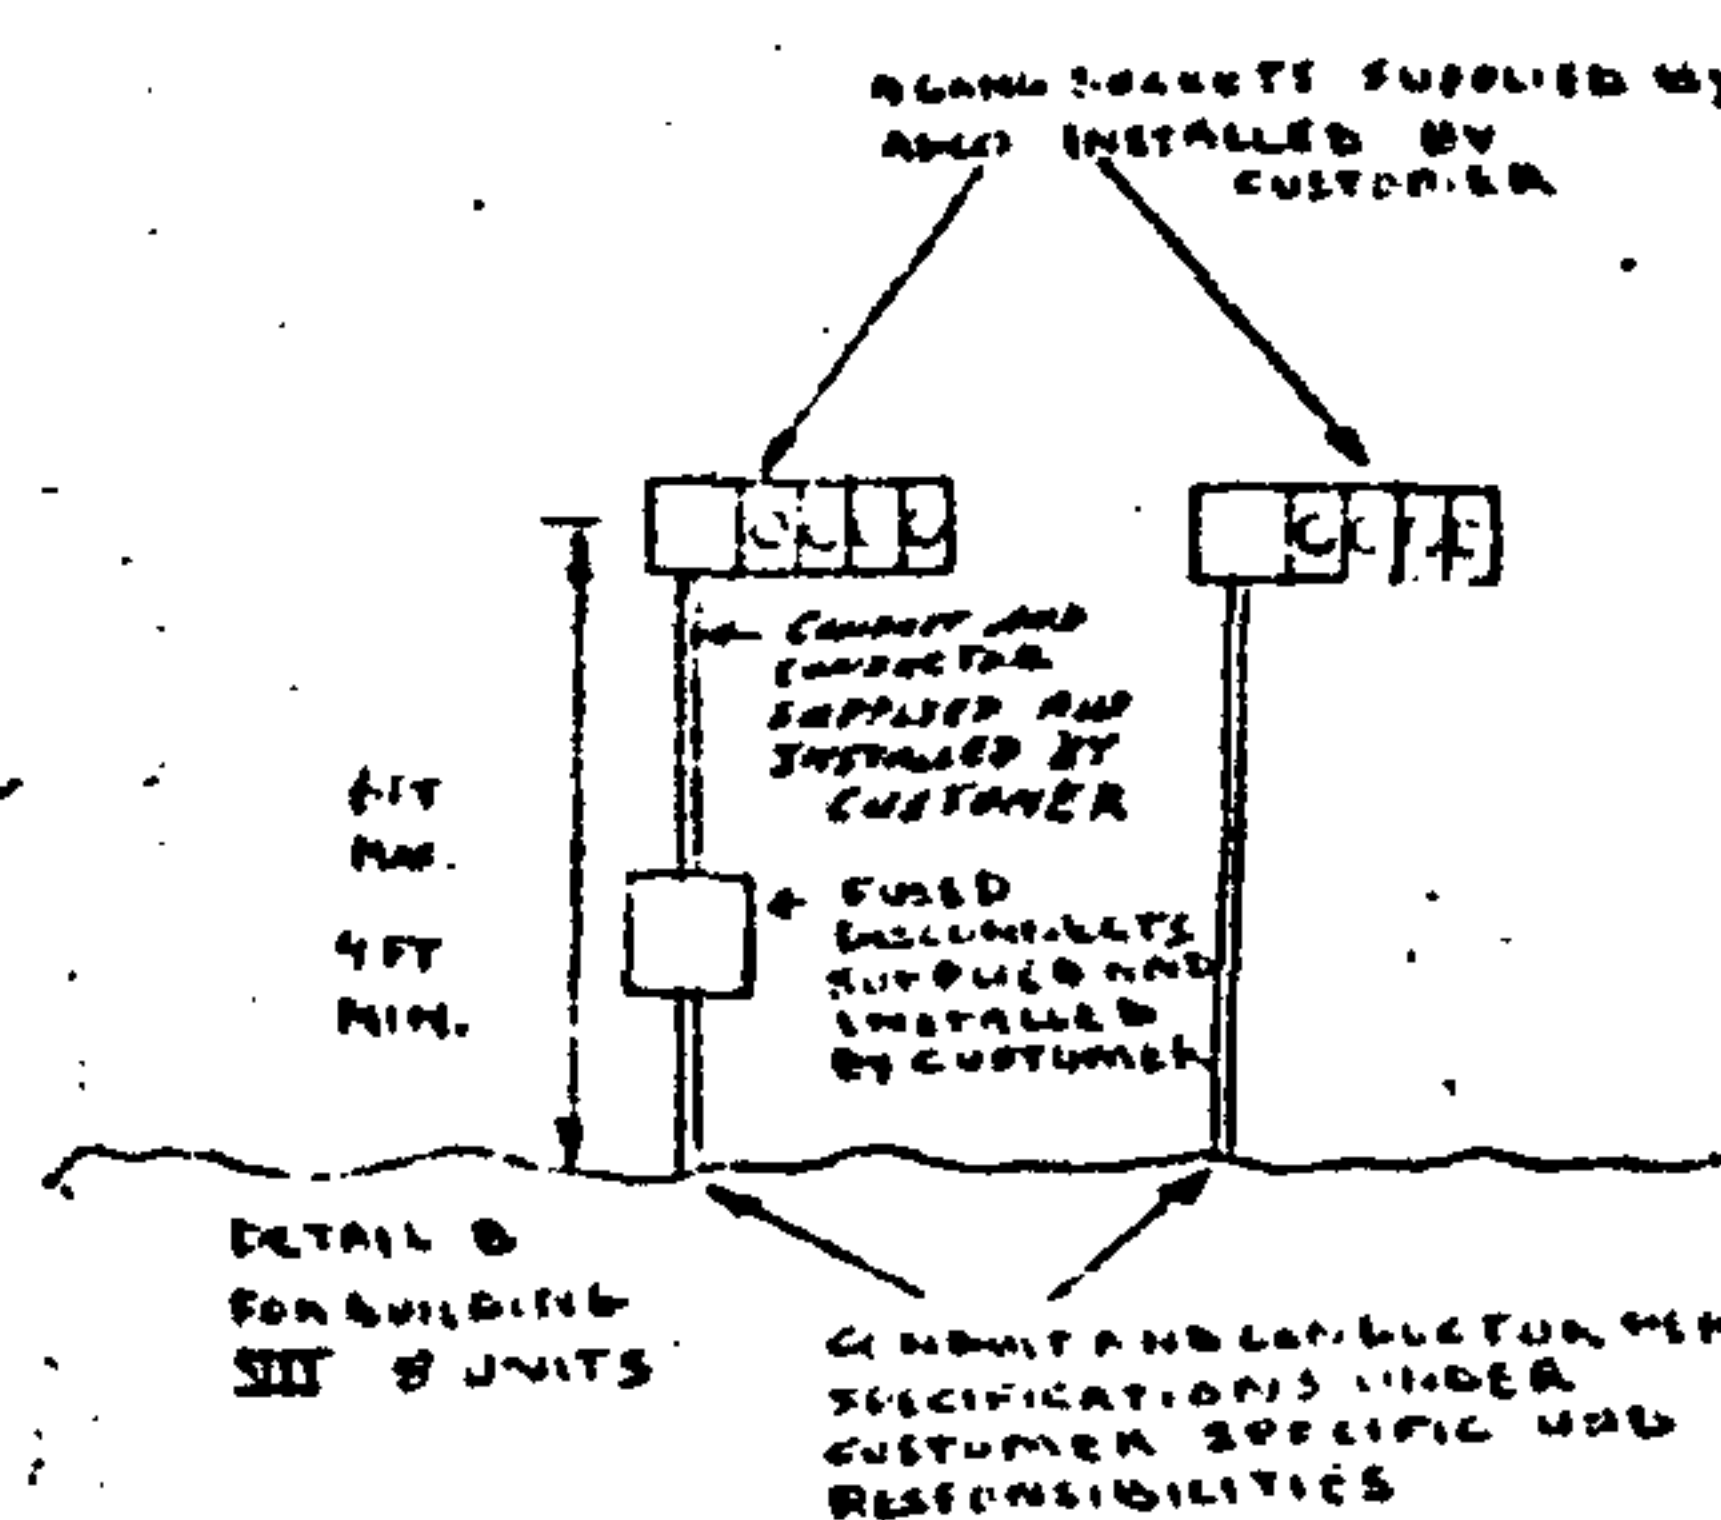 SUPPLIED BY
INSTALLED BY
CUSTOMER
CONDUIT AND
CONDUCTOR
SUPPLIED AND
INSTALLED BY
CUSTOMER
6 FT
MAX.
FUSED
DISCONNECTS
SUPPLIED AND
INSTALLED
BY CUSTOMER
4 FT
MIN.
DETAIL B
FOR BUILDING
VIII 8 UNITS
CONDUIT AND CONDUCTOR
SPECIFICATIONS UNDER
CUSTOMER SPECIFIC
RESPONSIBILITIES